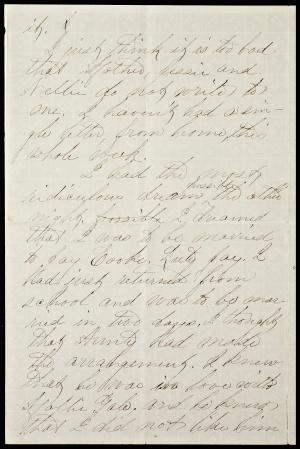 it. I
I just think it is too bad
that Mother, Jessie and
Nellie do not write to
me. I haven't had a sin-
gle letter from home, this
whole week.
I had the most
ridiculous dream possible the other
night, possible I dreamed
that I was to be married
to Jay Cooke. Duty Jay. I
had just returned from
school and was to be mar-
ried in two days. I thought
that Aunt had made
the arrangement. I knew
that he was in love with
Mollie Gale. and he knew
that I did not like him